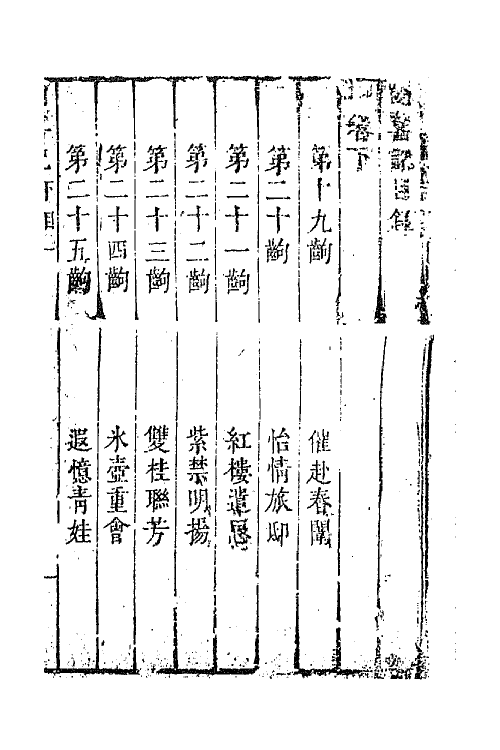 記目錄
卷下
第十九齣 催赴春闈
第二十齣 怡情旅邸
第二十一齣 紅樓遣
第二十二齣 紫禁明揚
第二十三齣 雙桂聯芳
第二十四齣 氷壺重會
第二十五齣 遐憶青娃